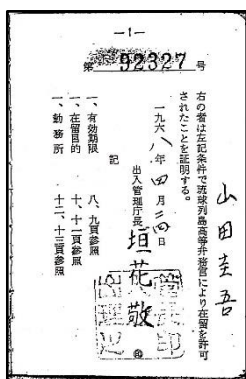 —1—
第 92327 号
山田圭吾
右の者は左記条件で琉球列島高等弁務官により在留を許可
されたことを証明する。
一九六八年四月二四日
出入管理庁長 垣花 敬
記
一、有効期限 八、九頁参照
一、在留目的 十、十一頁参照
一、勤務所 十二、十三頁参照